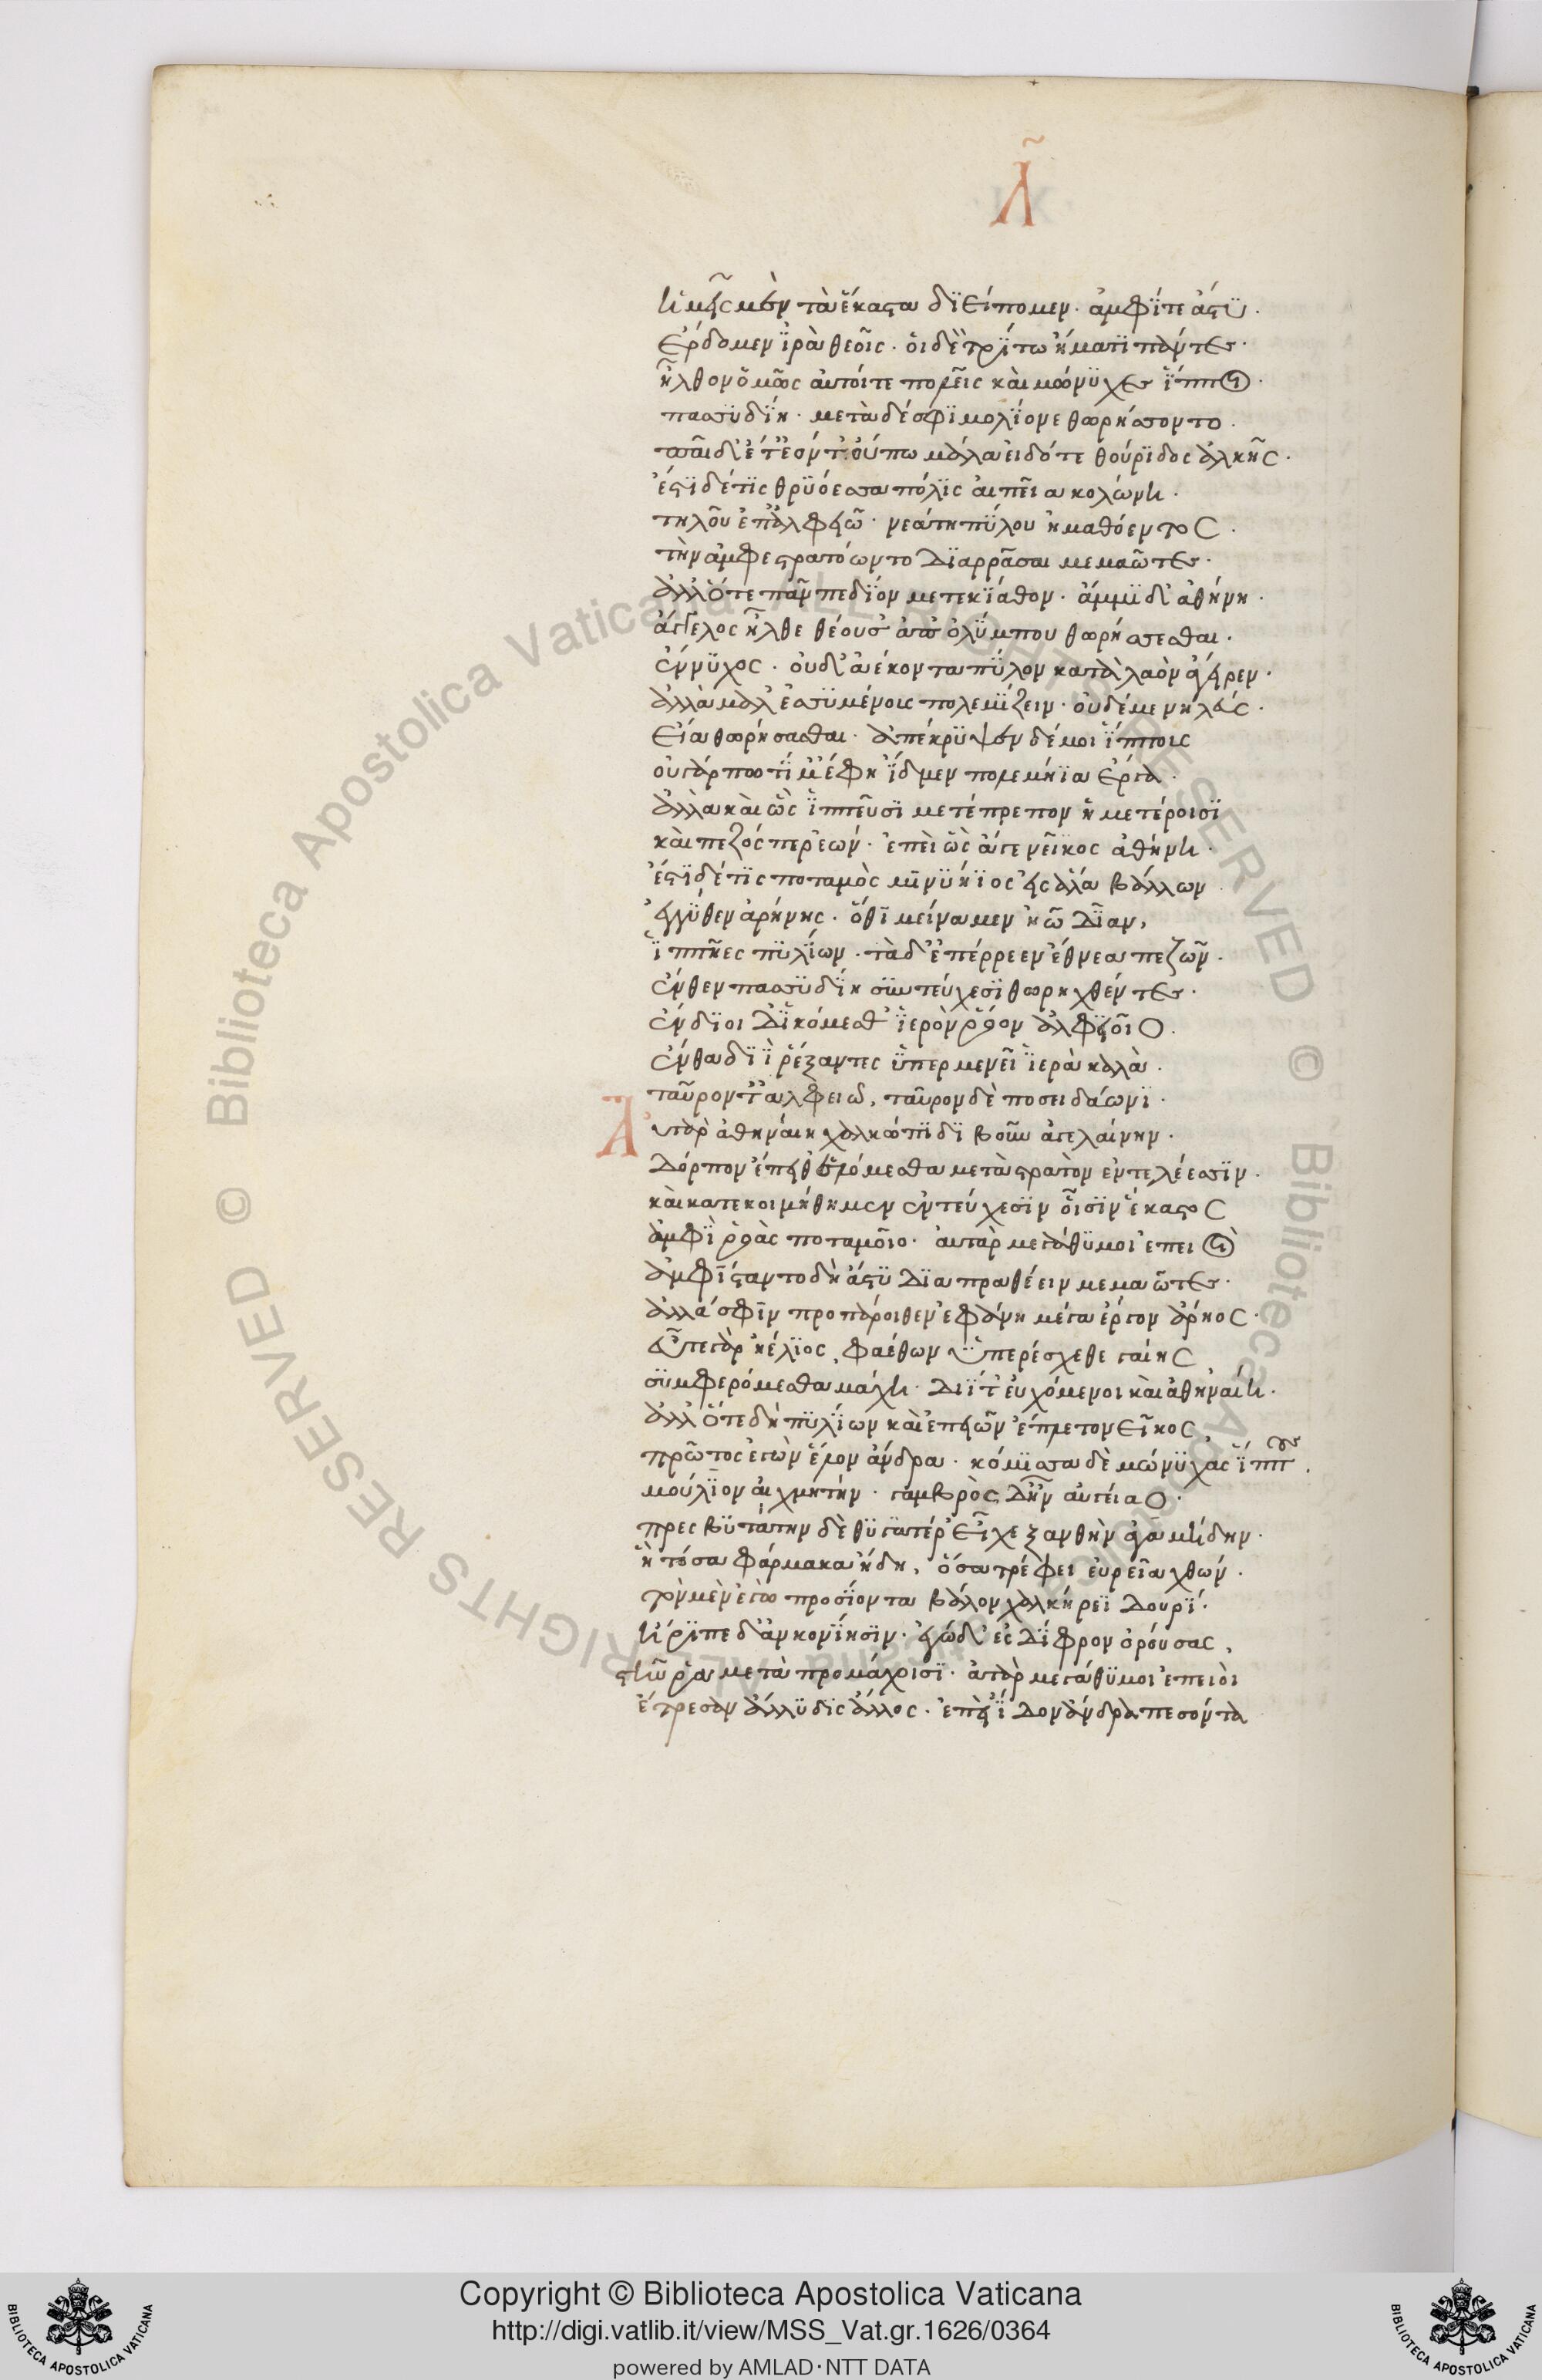 Λ
ἡμεῖς μὲν τὰ ἕκαστα διείπομεν· ἀμφί τε ἄστυ·
ἔρδομεν ἱρὰ θεοῖς· οἱ δὲ τρίτω ἤματι πάντες·
ἦλθον ὁμῶς αὐτοί τε πολεῖς καὶ μώνυχες ἵπποι·
πασσυδίη· μετὰ δέ σφι μολίονε θωρήσσοντο·
παῖδ' ἔτ' ἐόντ' οὔπω μάλα εἰδότε θούριδος ἀλκῆς·
ἔστι δέ τις θρυόεσσα πόλις αἰπεῖα κολώνη·
τηλοῦ ἐπ' ἀλφειῶ· νεάτη πύλου ἠμαθόεντος·
τὴν ἀμφεστρατόωντο διαρρᾶσαι μεμαῶτες·
ἀλλ' ὅτε πᾶν πεδίον μετεκίαθον· ἄμμι δ' ἀθήνη·
ἄγγελος ἦλθε θέουσ' ἀπ' ὀλύμπου θωρήσσεσθαι·
ἔννυχος· οὐδ' ἀέκοντα πύλον κατὰ λαὸν ἄγειρεν·
ἀλλὰ μάλ' ἐσσυμένοις πολεμίζειν· οὐδέ με νηλεύς·
εἴα θωρήσσεσθαι· ἀπέκρυψεν δέ μοι ἵππους
οὐ γάρ πώ τί μ' ἔφη ἴδμεν πολεμήϊα ἔργα·
ἀλλὰ καὶ ὣς ἱππεῦσι μετέπρεπον ἡμετέροισι
καὶ πεζός περ ἐών· ἐπεὶ ὣς ἄγε νεῖκος ἀθήνη·
ἔστι δέ τις ποταμὸς μινυήϊος εἰς ἅλα βάλλων
ἐγγύθεν ἀρήνης· ὅθι μείναμεν ἠῶ δῖαν,
ἱππῆες πυλίων· τὰ δ' ἐπέρρεεν ἔθνεα πεζῶν·
ἔνθεν πασσυδίη σὺν τεύχεσι θωρηχθέντες·
ἔνδιοι δ' ἱκόμεσθ' ἱερὸν ῥόον ἀλφειοῖο·
ἔνθα διὶ ῥέξαντες ὑπερμενεῖ ἱερὰ καλὰ·
ταῦρον τ' ἀλφειῶ, ταῦρον δὲ ποσειδάωνι·
Αὐτὰρ ἀθηναίη γλαυκώπιδι βοῦν ἀγελαίην·
δόρπον ἔπειθ' ἑλόμεσθα μετὰ στρατὸν ἐν τελέεσσιν·
καὶ κατεκοιμήθημεν ἐν τεύχεσιν οἷσιν ἕκαστος
ἀμφὶ ῥοὰς ποταμοῖο· αὐτὰρ μεγάθυμοι ἐπειοὶ
ἀμφίσταντο δὴ ἄστυ διαπραθέειν μεμαῶτες·
ἀλλά σφιν προπάροιθεν ἐφάνη μέγα ἔργον ἄρηος·
εὖτε γὰρ ἠέλιος, φαέθων ὑπερέσχεθε γαίης,
συμφερόμεσθα μάχη· διί τ' εὐχόμενοι καὶ ἀθηναίη·
ἀλλ' ὅτε δὴ πυλίων καὶ ἐπειῶν ἔπλετο νεῖκος,
πρῶτος ἐγὼν ἕλον ἄνδρα· κόμισσα δὲ μώνυχας ἵππους.
μούλιον αἰχμητήν· γαμβρὸς δ' ἦν αὐγείαο·
πρεσβυτάτην δὲ θύγατέρ' εἶχε ξανθὴν ἀγαμήδην·
ἣ τόσα φάρμακα ἤδη, ὅσα τρέφει εὐρεῖα χθών·
τὸν μὲν ἐγὼ προσιόντα βάλον χαλκήρεϊ δουρί·
ἤριπε δ' ἐν κονίησιν· ἐγὼ δ' ἐς δίφρον ὀρούσας,
στῆν ῥα μετὰ προμάχοισι· ἀτὰρ μεγάθυμοι ἐπειοὶ
ἔτρεσαν ἄλλυδις ἄλλος· ἐπεὶ ἴδον ἄνδρα πεσόντα
Copyright © Biblioteca Apostolica Vaticana
http://digi.vatlib.it/view/MSS_Vat.gr.1626/0364
powered by AMLAD·NTT DATA